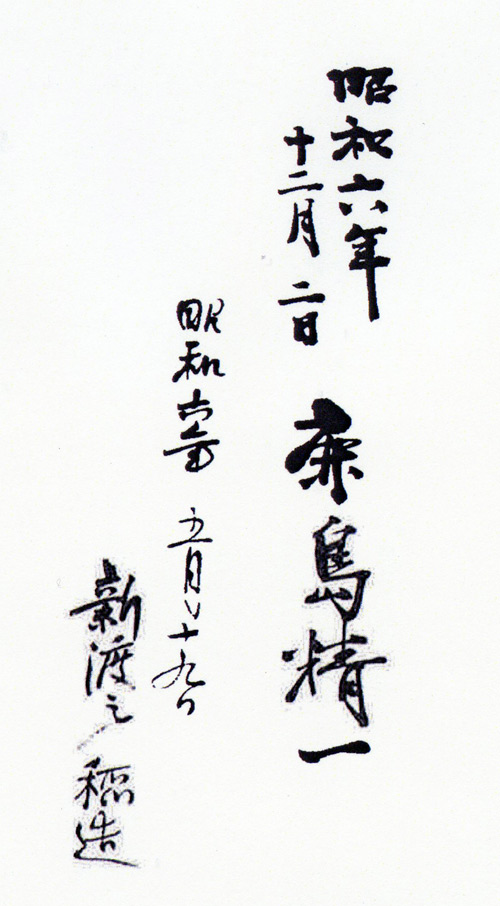 昭和六年
十二月二日
島精一
昭和六年 五月二十九日
新渡戸稲造